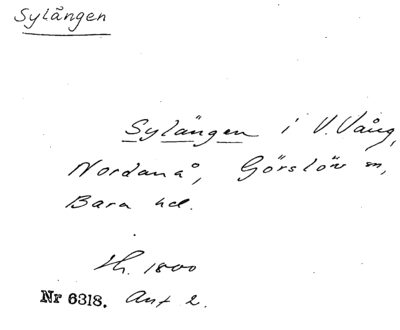 Sylången
Sylängen i V. Vång,
Nordanå, Görslöv sn,
Bara hd.
1800
Nr 6318. Ant 2.